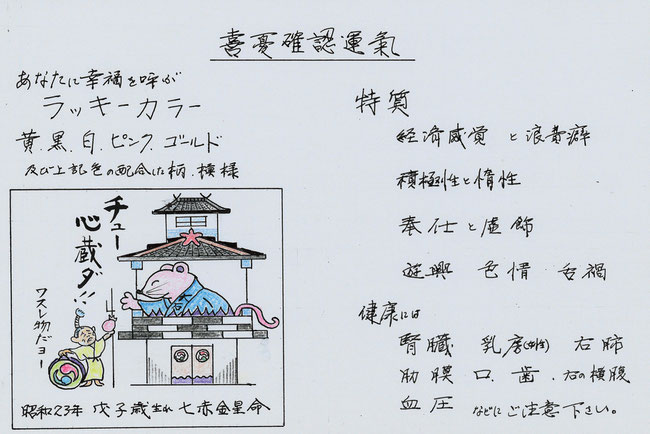 喜憂確認運氣
あなたに幸福を呼ぶ
ラッキーカラー
黄、黒、白、ピンク、ゴールド
及び上記色の配合した柄、模様
チュー
心蔵ダ!!
ワスレ物だョー
昭和23年 戊子歳生れ 七赤金星命
特質
経済感覚 と 浪費癖
積極性と惰性
奉仕と虚飾
遊興 色情 舌禍
健康には
腎臓 乳房(女性) 右肺
肋膜 口、歯、右の横腹
血圧 などにご注意下さい。